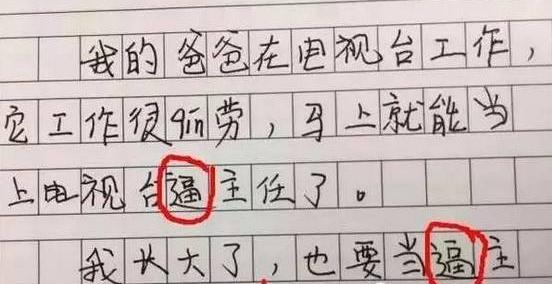 我的爸爸在电视台工作,
它工作很qin劳,马上就能当
上电视台逼主任了。
我长大了,也要当逼主